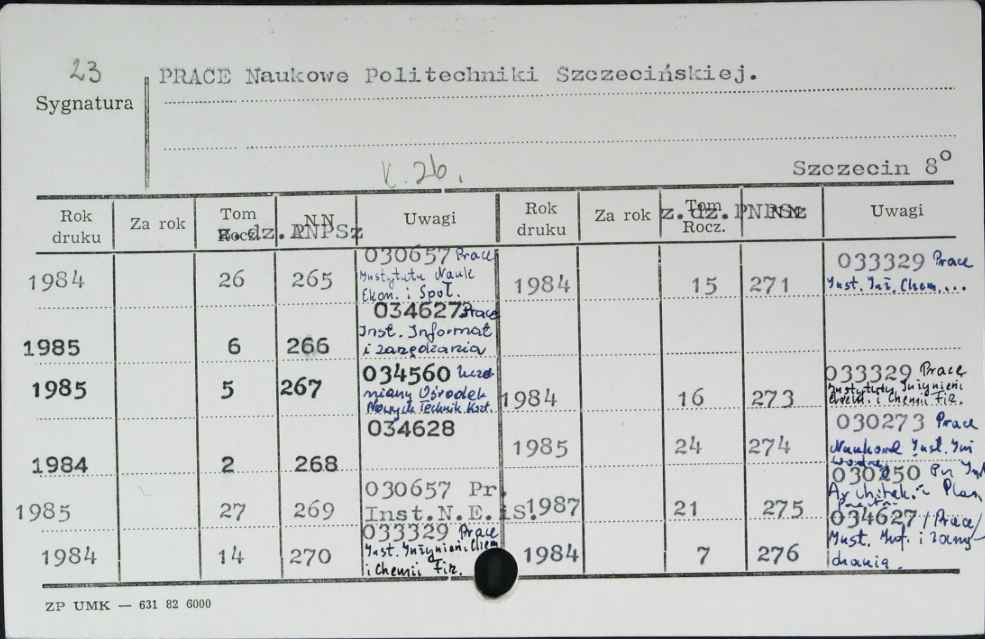 23
Sygnatura
PRACE Naukowe Politechniki Szczecińskiej.
K. 26.
Szczecin 8°
Rok druku Za rok Tom Rocz. N.N Uwagi Rok druku Za rok Tom Rocz. N.N Uwagi
z.dz. PNPSz z.dz.PNPSz
1984 26 265 030657 Prace
Instytutu Nauk
Ekon. i Społ.
1984 15 271 033329 Prace
Inst. Inż. Chem....
1985 6 266 034627 Prace
Inst. Informat
i zarządzania
1985 5 267 034560 Ucze
niany Ośrodek
Nowych Technik Kszt.
1984 16 273 033329 Prace
Instytutu Inżynieri
Chem. i Chemii Fiz.
1984 2 268 034628
1985 24 274 030273 Prace
Naukowe Inst. Inż
Wodnej
1985 27 269 030657 Pr.
Inst.N.E.iS.
1987 21 275 030250 Pr Inst
Architekt. i Plan
1984 14 270 033329 Prace
Inst. Inżynierii Chem
i Chemii Fiz.
1984 7 276 034627 /Prace/
Inst. Inf. i zarzą-
dzania.
ZP UMK — 631 82 6000